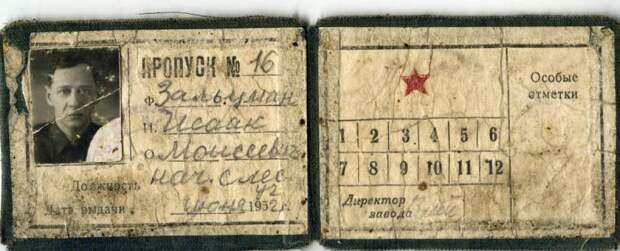 ПРОПУСК № 16
Ф. Зальцман
И. Исаак
О. Моисеевич
Должность нач. слес
Дата выдачи июня 1952 г.
1 2 3 4 5 6
7 8 9 10 11 12
Директор
завода
Особые
отметки